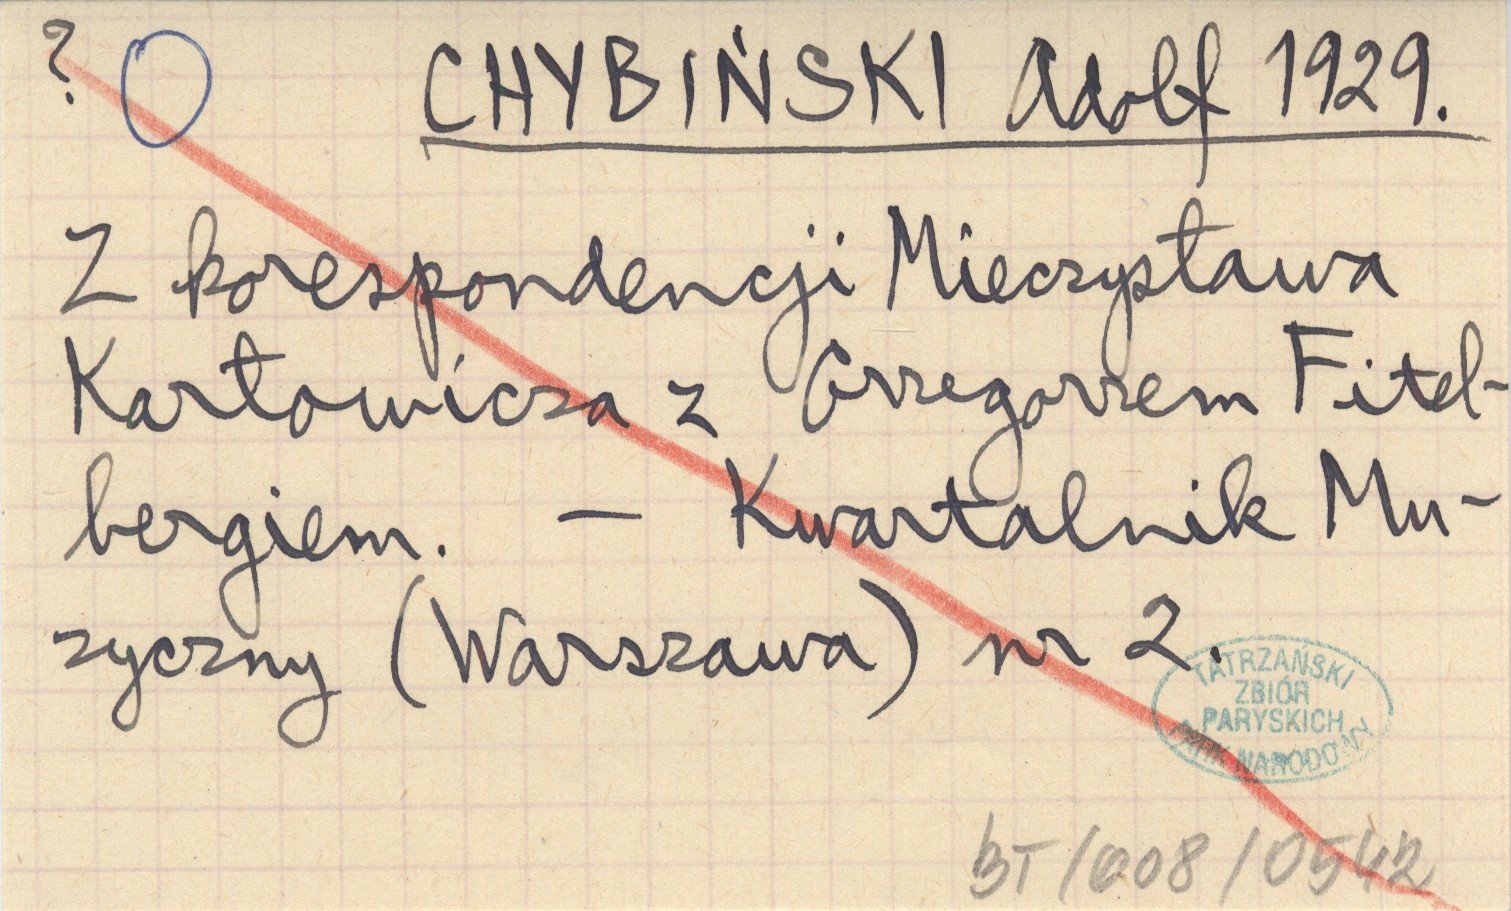 ? CHYBIŃSKI Adolf 1929.
Z korespondencji Mieczysława
Karłowicza z Grzegorzem Fitel-
bergiem. — Kwartalnik Mu-
zyczny (Warszawa) nr 2.
TATRZAŃSKI
ZBIÓR
PARYSKICH
PARK NARODOWY
BT/008/0542